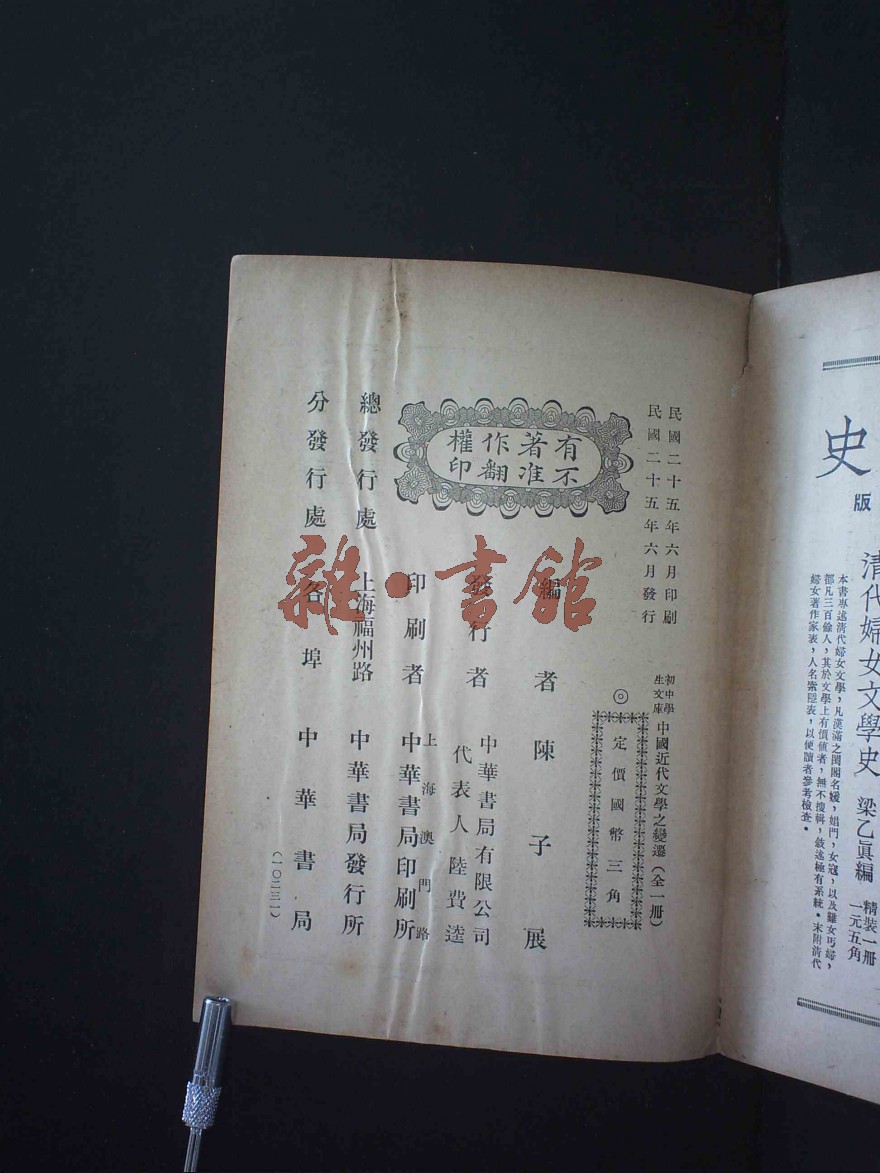 史
版
清代婦女文學史 梁乙眞編 精裝一冊 一元五角
本書專述清代婦女文學，凡漢滿之閨閣名媛，娼門，女冠，以及雛女丐婦，
都凡三百餘人，其於文學上有價値者，無不搜輯，敍述極有系統。末附清代
婦女著作家表，人名索隱表，以便讀者參考檢查。
民國二十五年六月印刷
民國二十五年六月發行
初中學生文庫 中國近代文學之變遷（全一冊）
◎定價國幣三角
有著作權
不准翻印
編者 陳子展
發行者 中華書局有限公司
代表人 陸費逵
印刷者 上海澳門路
中華書局印刷所
總發行處 上海福州路 中華書局發行所
分發行處 各埠 中華書局
（一〇二三一）
雜·書館